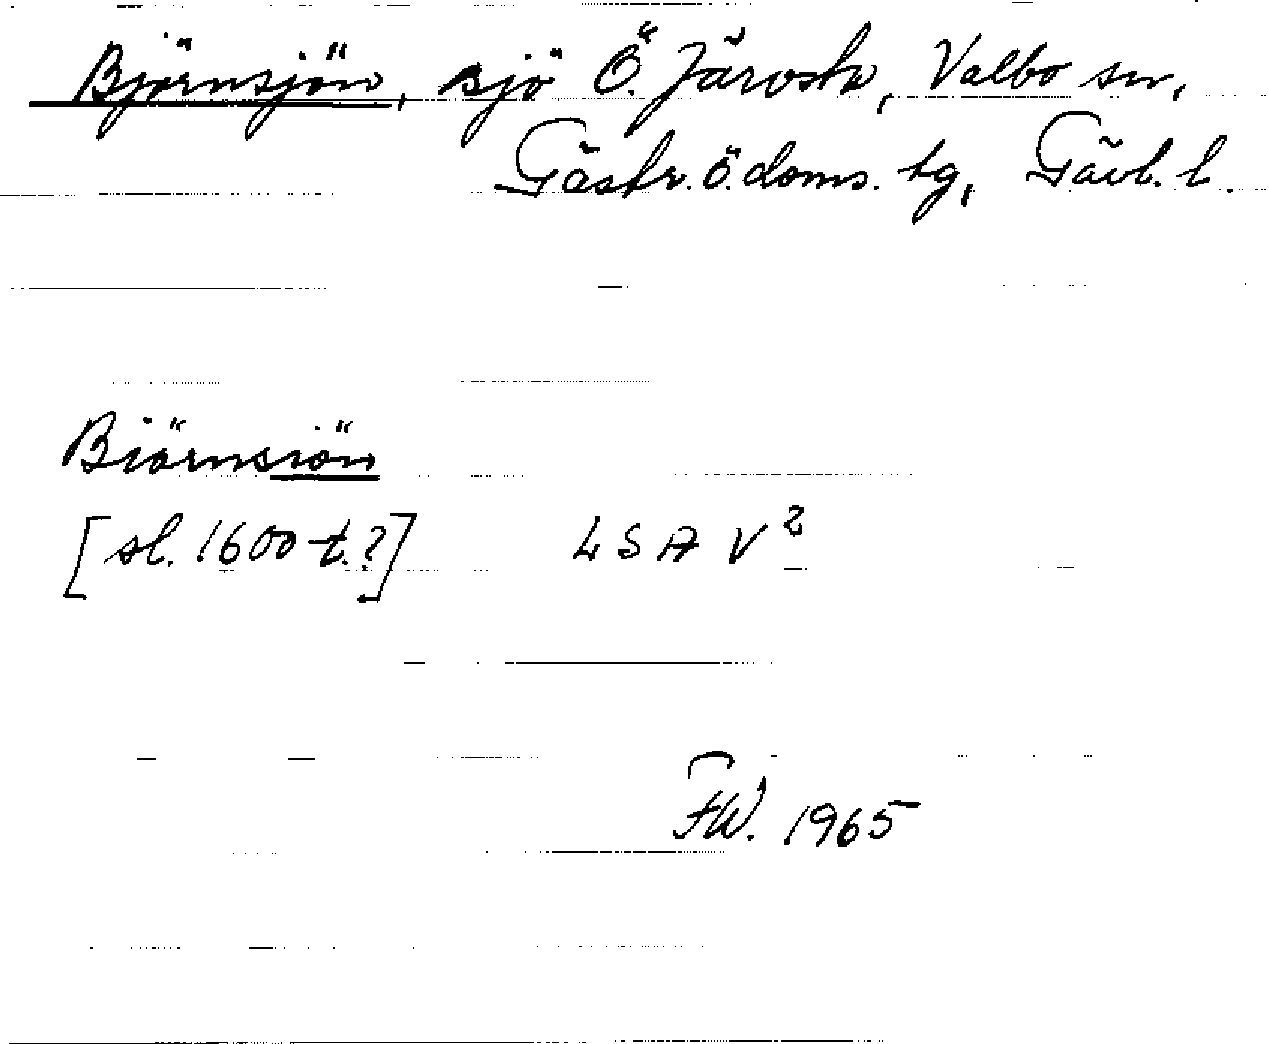 Björnsjön, sjö Ö. Järvsta, Valbo sn,
Gästr. ö. doms. tg, Gävl. l.
Biörnsiön
[sl. 1600-t.?] LSA V²
FW. 1965